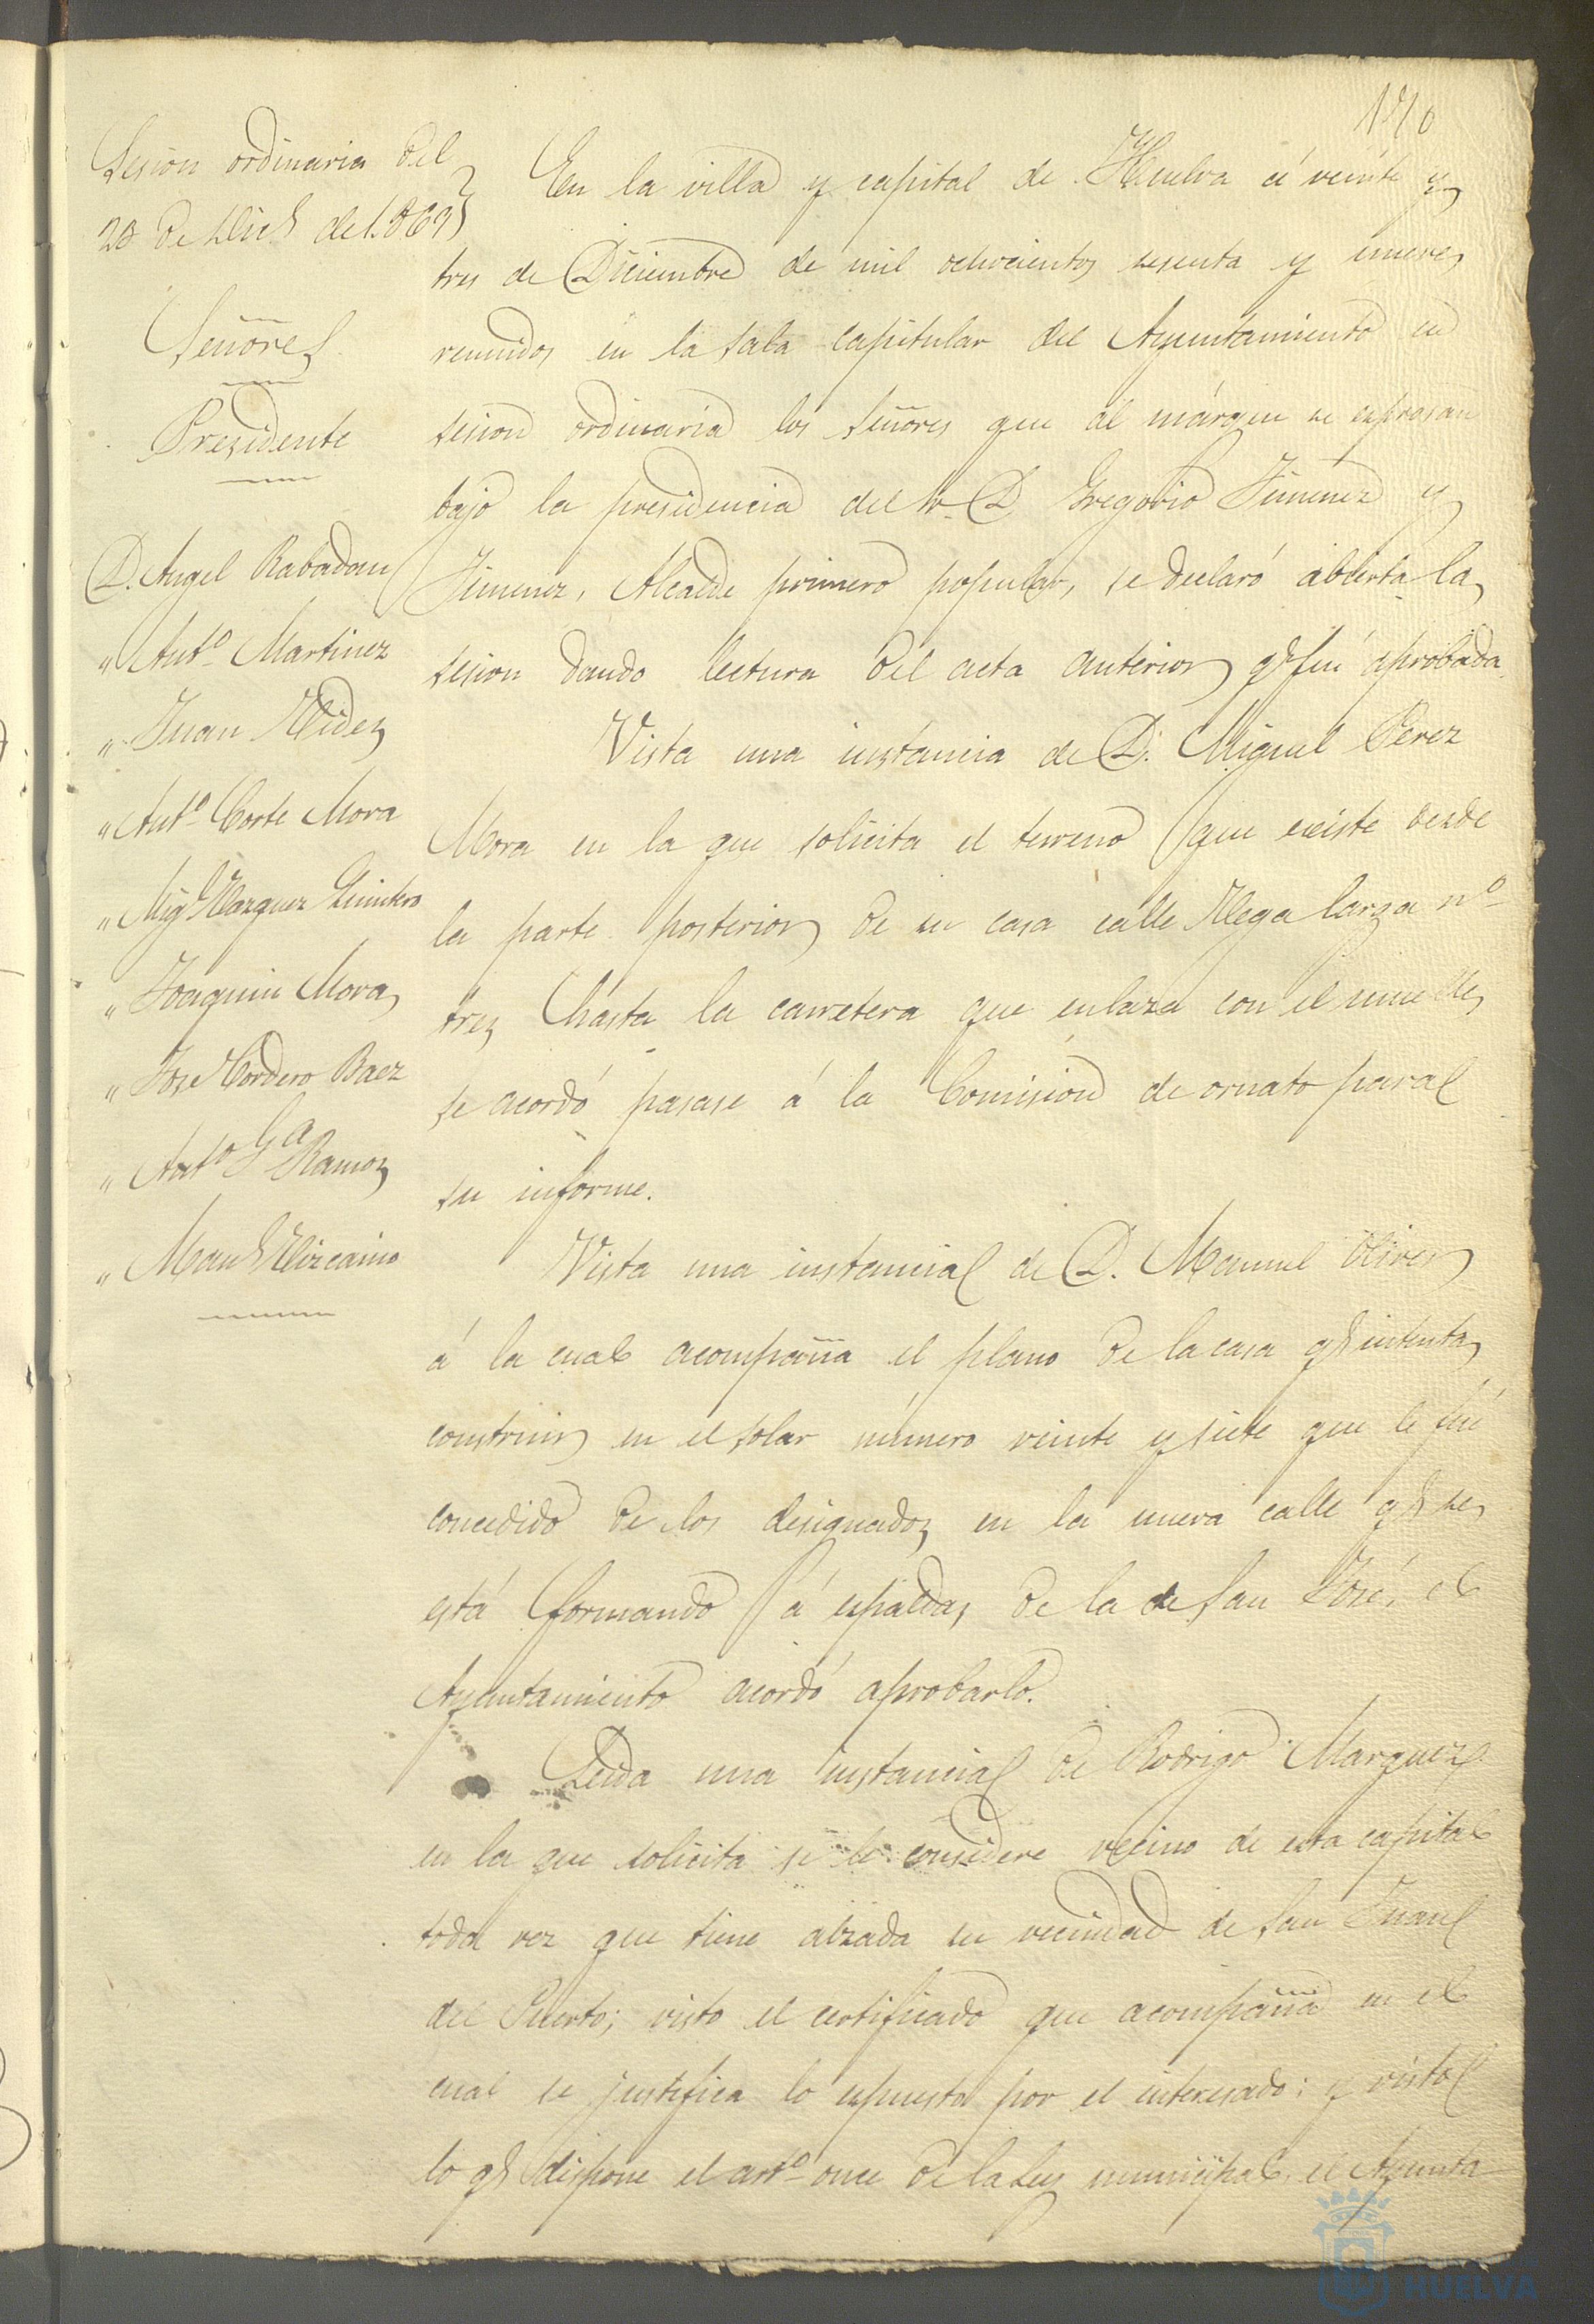 170
Sesion ordinaria del
23 de Dice de 1.869
Señores
Presidente
D. Angel Rabadan
" Antº Martinez
" Juan Videz
" Antº Corte Mora
" Migl Vazquez Quintero
" Joaquin Mora
" Jose Cordero Baez
" Antº Ga Ramoz
" Manl Vizcaino
En la villa y capital de Huelva á veinte y
tres de Diciembre de mil ochocientos sesenta y nueve,
reunidos en la sala capitular del Ayuntamiento en
sesion ordinaria los Señores que al márgen se espresan
bajo la presidencia del Sr. D. Gregorio Jimenez y
Jimenez, Alcalde primero popular, se declaró abierta la
sesion dando lectura del acta anterior qe fué aprobada.
Vista una instancia de D. Miguel Perez
Mora en la que solicita el terreno que existe desde
la parte posterior de su casa calle Vega larga nº
trez hasta la carretera que enlaza con el muelle,
se acordó pasase á la Comision de ornato para
su informe.
Vista una instancia de D. Manuel Oliver
á la cual acompaña el plano de la casa qe intenta
construir en el solar número veinte y siete que le fué
concedido de los designadoz en la nueva calle qe se
está formando á espaldas de la de San José, el
Ayuntamiento acordó aprobarlo.
Leida una instancia de Rodrigo Marquez
en la que solicita se le considere vecino de esta capital
toda vez que tiene alzada su vecindad de San Juan
del Puerto; visto el certificado que acompaña en el
cual se justifica lo espuesto por el interesado; y visto
lo qe dispone el artº once de la Ley municipal, el Ayunta
HUELVA